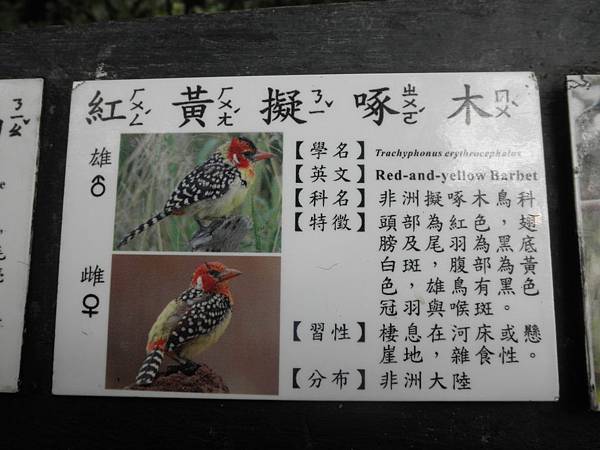 紅ㄏㄨㄥˊ 黃ㄏㄨㄤˊ 擬ㄋㄧˇ 啄ㄓㄨㄛˊ 木ㄇㄨˋ
雄
♂
雌
♀
【學名】Trachyphonus erythrocephalus
【英文】Red-and-yellow Barbet
【科名】非洲擬啄木鳥科
【特徵】頭部為紅色，翅
膀及尾羽為黑底
白斑，腹部為黃
色，雄鳥有黑
冠羽與喉斑。
【習性】棲息在河床或懸
崖地，雜食性。
【分布】非洲大陸